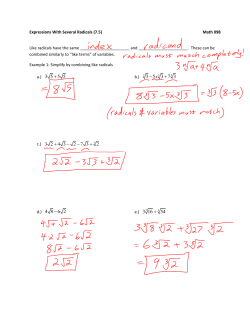 Expressions With Several Radicals (7.5) Math 098
Like radicals have the same index and radicand. These can be
combined similarly to "like terms" of variables. radicals must match completely!
Example 1: Simplify by combining like radicals
a.) 3√5 + 5√5 b.) ∛3 − 5x∛3 + 7∛3
= 8√5 8∛3 − 5x∛3 = ∛3 (8−5x)
(radicals & variables must match)
c.) 3√2 + 4∛3 − √2 − 7∛3 + ∛2
2√2 − 3∛3 + ∛2
d.) 4√8 − 6√2 e.) 3∛16 + ∛54
4√4 √2 − 6√2 3∛8 ∛2 + ∛27 ∛2
4·2 √2 − 6√2 = 6∛2 + 3∛2
8√2 − 6√2 = 9∛2
2√2